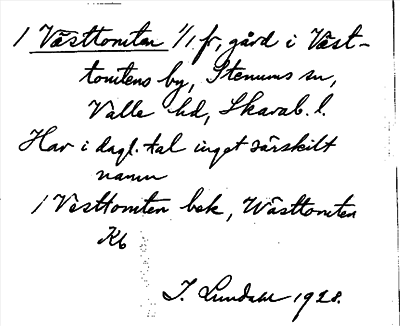 1 Västtomten 1/1 fr, gård i Väst-
tomtens by, Stenums sn,
Valle hd, Skarab. l.
Har i dagl. tal inget särskilt
namn
1 Vesttomten bek, Wästtomten
Kb
I. Lundahl 1928.